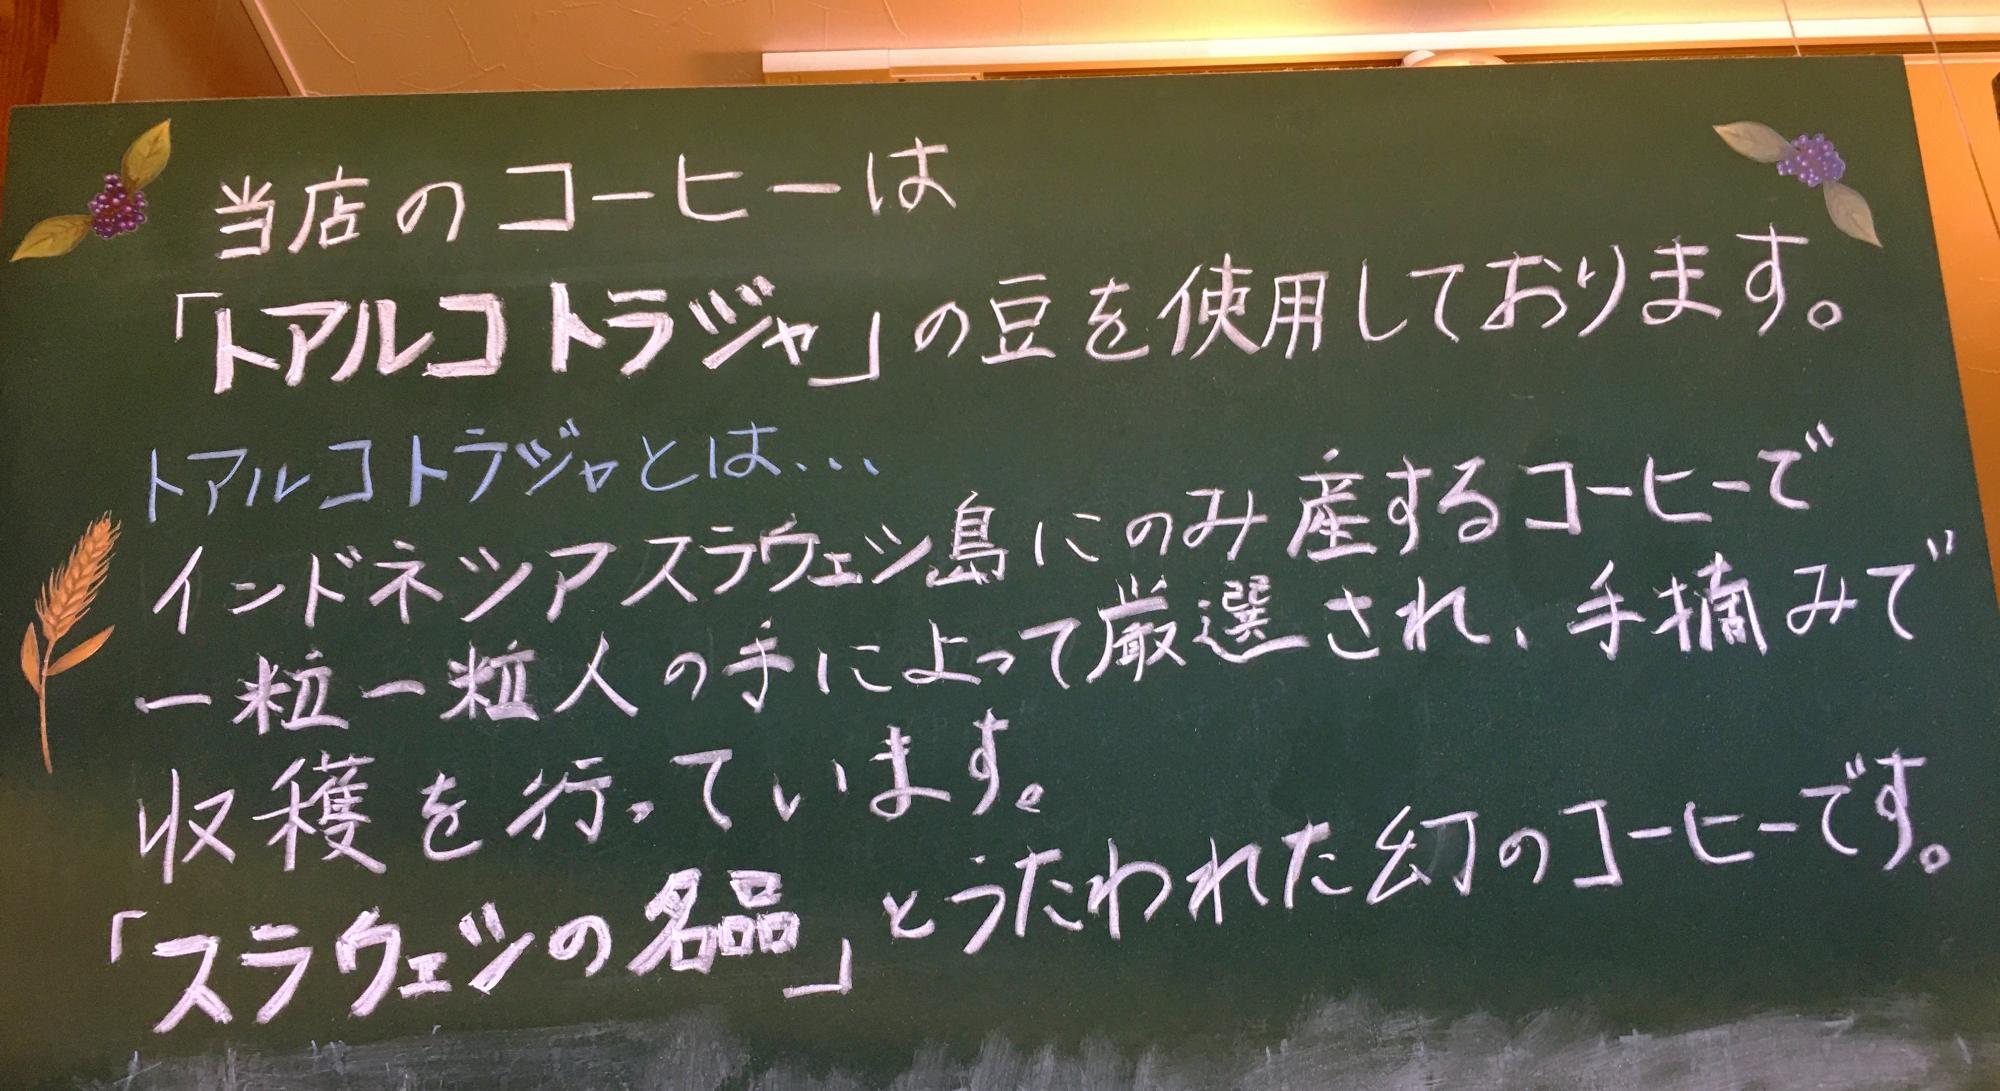 当店のコーヒーは
「トアルコ トラジャ」の豆を使用しております。
トアルコ トラジャとは...
インドネシア スラウェシ島にのみ産するコーヒーで
一粒一粒人の手によって厳選され、手摘みで
収穫を行っています。
「スラウェシの名品」とうたわれた幻のコーヒーです。